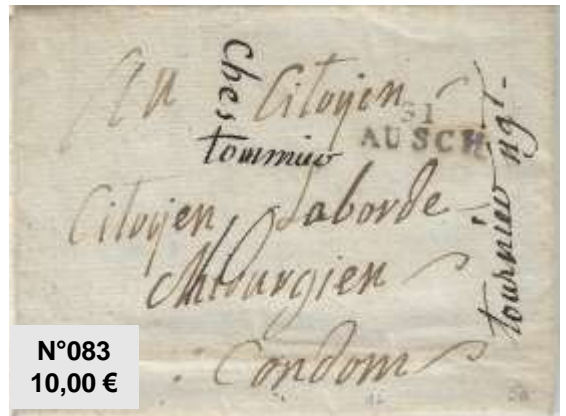 Au Citoyen
31
AUSCH
Ches
tournier
Citoyen Laborde
Chirurgien
Condom
tournier ngt.
N°083
10,00 €